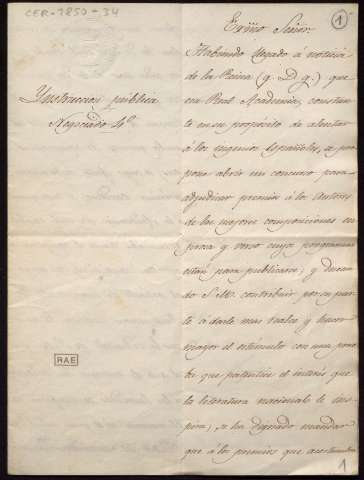 CER-1850-34
1
Instruccion pública
Negociado 4º.
RAE
Exmo Señor:
Habiendo llegado á noticia
de la Reina (q. D. g.) que
esa Real Academia, constan
te en su propósito de alentar
á los ingenios Españoles, se pro
pone abrir un concurso para
adjudicar premios á los Autores
de las mejores composiciones en
prosa y verso cuyos programas
están para publicarse; y desean
do S. M. contribuir por su par
te á darle mas realce y hacer
mayor el estímulo con una prue
ba que patentice el interés que
la literatura nacional le ins
pira; se ha dignado mandar
que á los premios que acostumbra
1